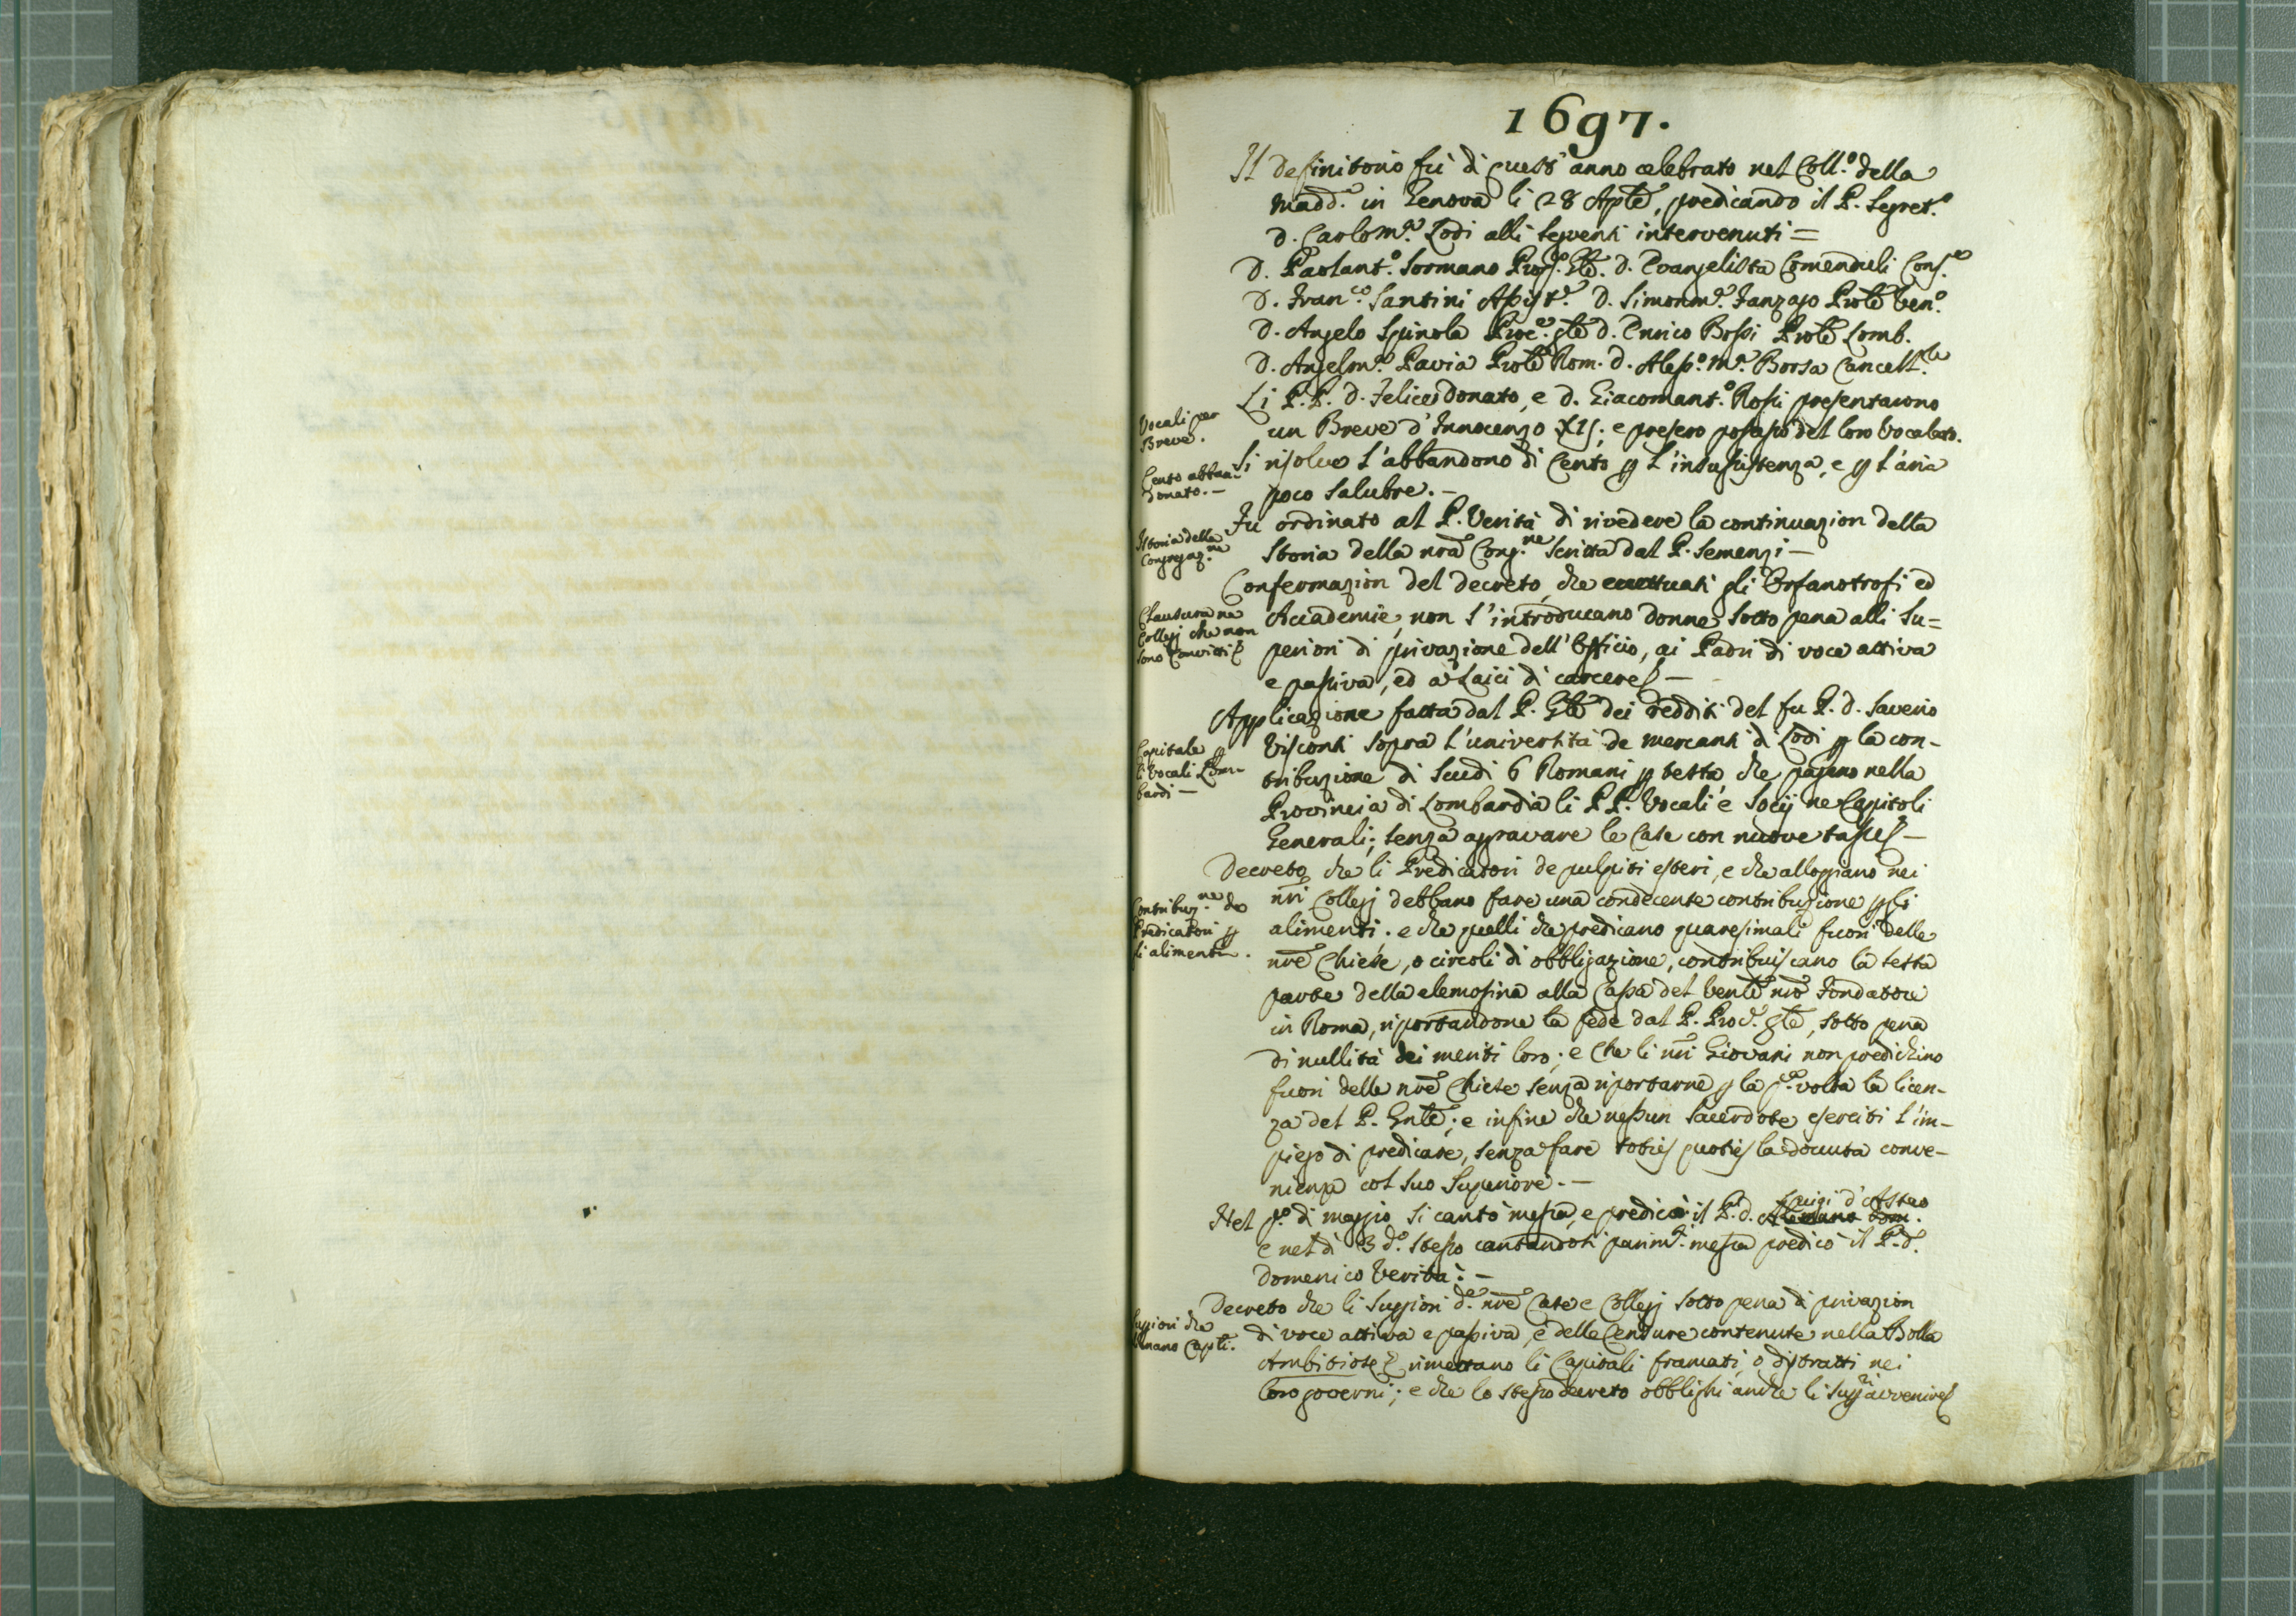 1697.
Il Definitorio fù di quest' anno celebrato nel Coll.º della
Madd.ª in Genova li 28 Aple, predicando il P. Segret.º
D. Carlom.ª Lodi alli seguenti intervenuti =
D. Paolant.º Sormano Gle. D. Evangelista Comenduli Cons.º
D. Fran.co Santini D. Simonm.ª Fanzago Prole Ven.º
D. Angelo Spinola Proc.e gle D. Enrico Bossi Prole Lomb.
D. Angelm.ª Pavia Prole Rom. D. Aless.º M.ª Borsa Cancell.
Li P.P. D. Felice Donato, e D. Giacomant.º Rossi presentarono
Vocali per
Breve.
un Breve d'Innocenzo XII; e presero possesso del loro Vocalato.
Si risolve l'abbandono di Cento p l'insussistenza, e p l'aria
Cento abban-
donato. -
poco salubre. -
Fu ordinato al P. Verità di rivedere la continuazion della
Istoria della
Congregaz.ne
Storia della nrã Cong.ne scritta dal P. Semenzi -
Confermazion del decreto, che eccettuati gli Orfanotrofi ed
Clausura ne
Collegj che non
sono Convitti
Accademie, non s'introducano donne sotto pena alli Su=
periori di privazione dell'Officio, ai Padri di voce attiva
e passiva, ed a Laici di carcere -
Applicazione fatta dal P. Gle dei redditi del fu P. D. Saverio
Capitale p
li Vocali Lom-
bardi -
Visconti sopra l'università de mercanti di Lodi p la con-
tribuzione di Scudi 6 Romani p testa che pagano nella
Provincia di Lombardia li PP. Vocali e Socij ne Capitoli
Generali; senza agravare le Case con nuove tasse -
Decreto che li Predicatori de pulpiti esteri, e che alloggiano nei
Contribuz.ne de
Predicatori p
li alimenti.
nri Collegj debbano fare una condecente contribuzione p gli
alimenti. e che quelli che predicano quaresimali fuori delle
nre Chiese, o circoli di obbligazione, contribuiscano la sesta
parte della elemosina alla Cassa del Ven.le nro Fondatore
in Roma, riportandone la fede dal P. Proc.e gle, sotto pena
di nullità dei meriti loro; e che li nri Giovani non predichino
fuori delle nre Chiese senza riportarne p la p.ª volta la licen-
za del P. Gnle; e infine che nessun Sacerdote eserciti l'im-
piego di predicare, senza fare toties quoties la dovuta conve-
nienza col suo Superiore. -
Nel p.º di maggio si cantò messa, e predicò il P. D. Luigi d'Asteo
e nel dì 3 d.º stesso cantandosi parim.te messa predicò il P. D.
Domenico Verità: -
Decreto che li Suppiori d.e nre Case e Collegj sotto pena di privazion
Suppiori che
Capti.
di voce attiva e passiva, e delle Censure contenute nella Bolla
Ambitiosæ rimettano li Capitali framati, o distratti nei
loro governi; e che lo stesso decreto obblighi anche li Supp.ri avvenire